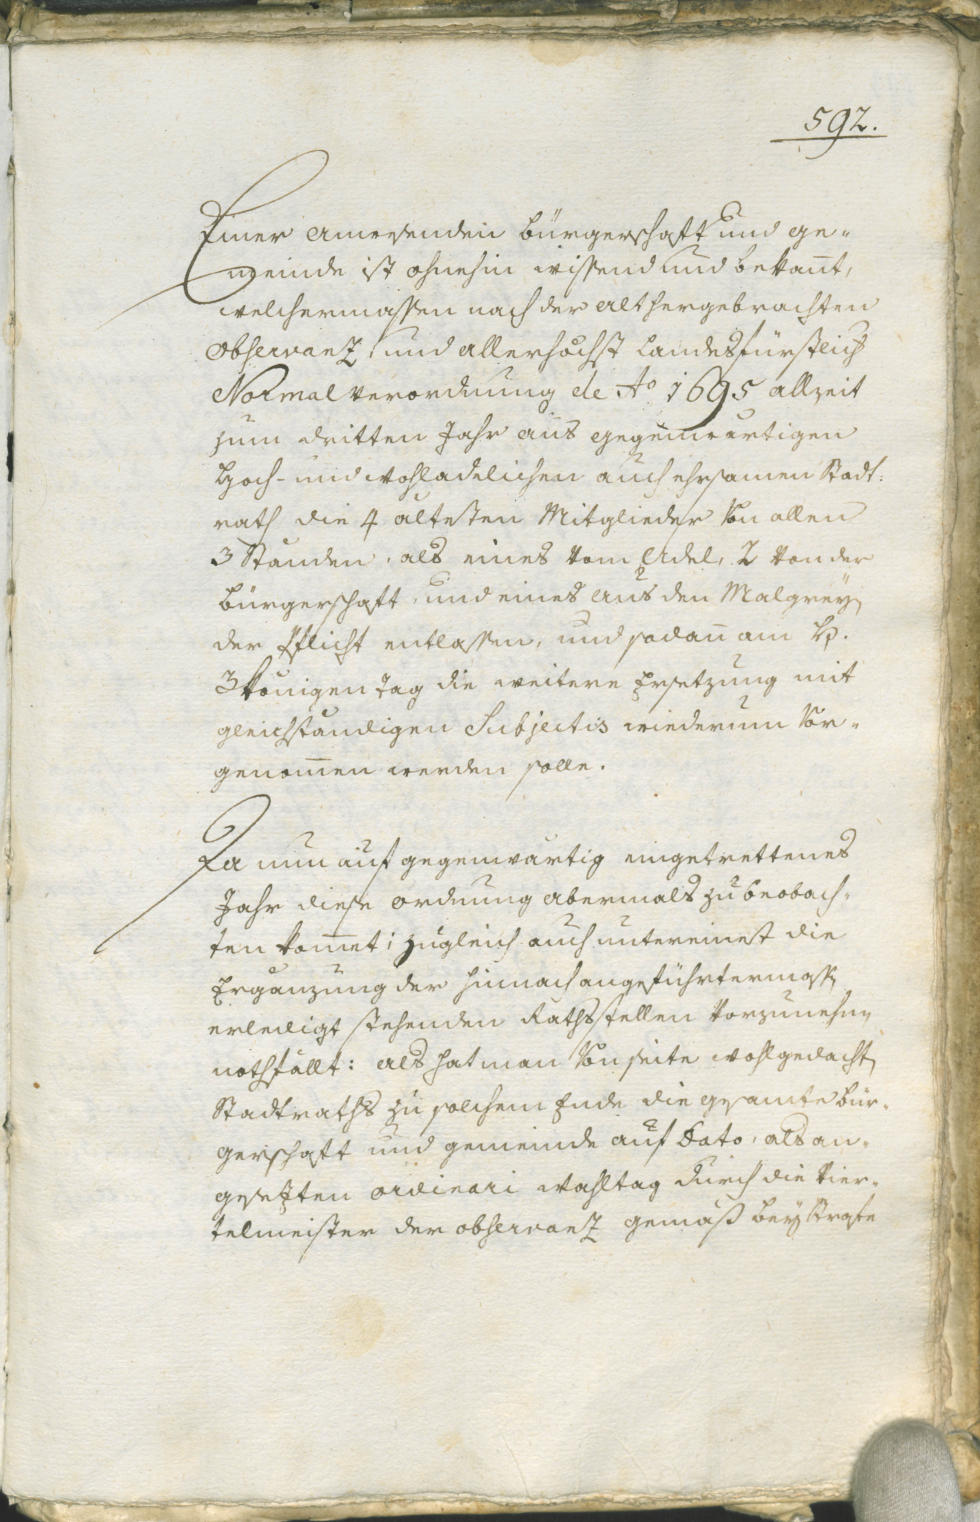 592.
Einer anwesenden Bürgerschaft und Ge-
meinde ist ohnehin wissend und bekan̄t,
welchermassen nach der althergebrachten
Observanz, und allerhöchst Landesfürstlich
Normal Verordnung de Ao 1695 allzeit
zum dritten Jahr aus gegenwärtigen
Hoch- und wohladelichen auch ehrsamen Stadt-
rath die 4 ältesten Mitglieder von allen
3 Ständen, als eines vom Adel, 2 von der
Bürgerschaft, und eines aus den Malgreÿ
der Pflicht entlassen, und sodan̄ am H.
3 Königen Tag die weitere Ersetzung mit
gleichständigen Subjectis wiederum vor-
genom̄en werden solle.
Da nun auf gegenwärtig eingetrettenes
Jahr diese Ordnung abermals zu beobach-
ten kom̄et; zugleich auch untereinst die
Ergänzung der hinnach angeführtermass
erlediget stehenden Rathsstellen vorzunehm
nothfällt: als hat man von seite wohlgedacht
Stadtraths zu solchem Ende die gesamte Bür-
gerschaft und Gemeinde auf Dato, als an-
gesetzten ordinari Wahltag durch die Vier-
telmeister der Observanz gemäß beÿ Strafe